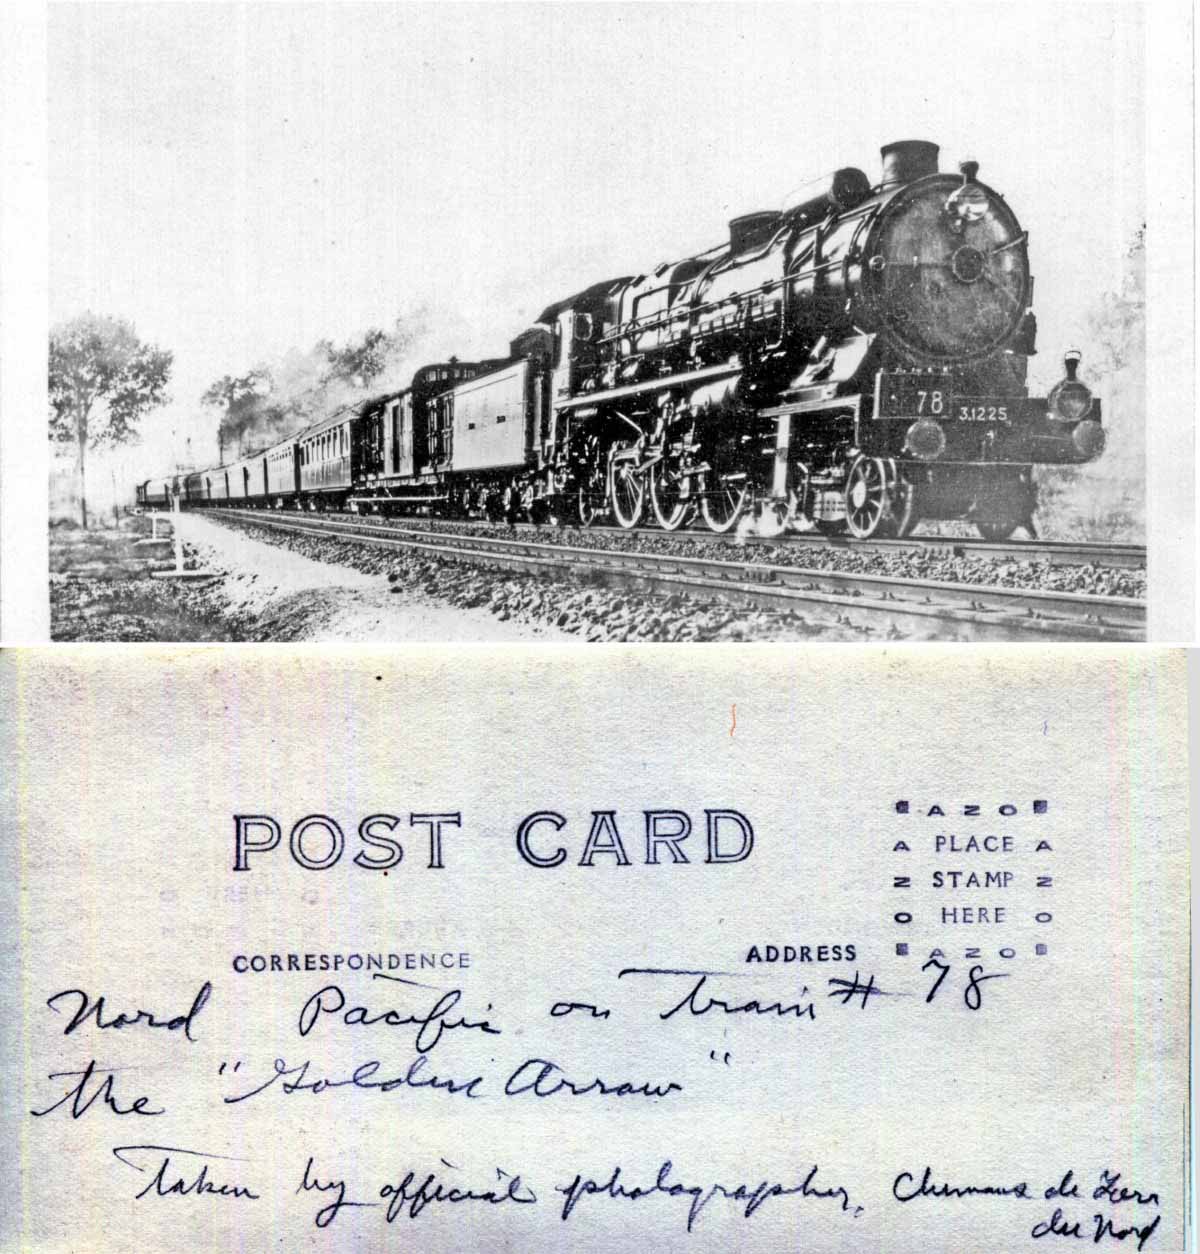 78 3.1225
POST CARD
AZO
A PLACE A
Z STAMP Z
O HERE O
AZO
CORRESPONDENCE ADDRESS
Nord Pacific on Train # 78
the "Golden Arrow"
Taken by official photographer, Chemans de Feer
du Nord